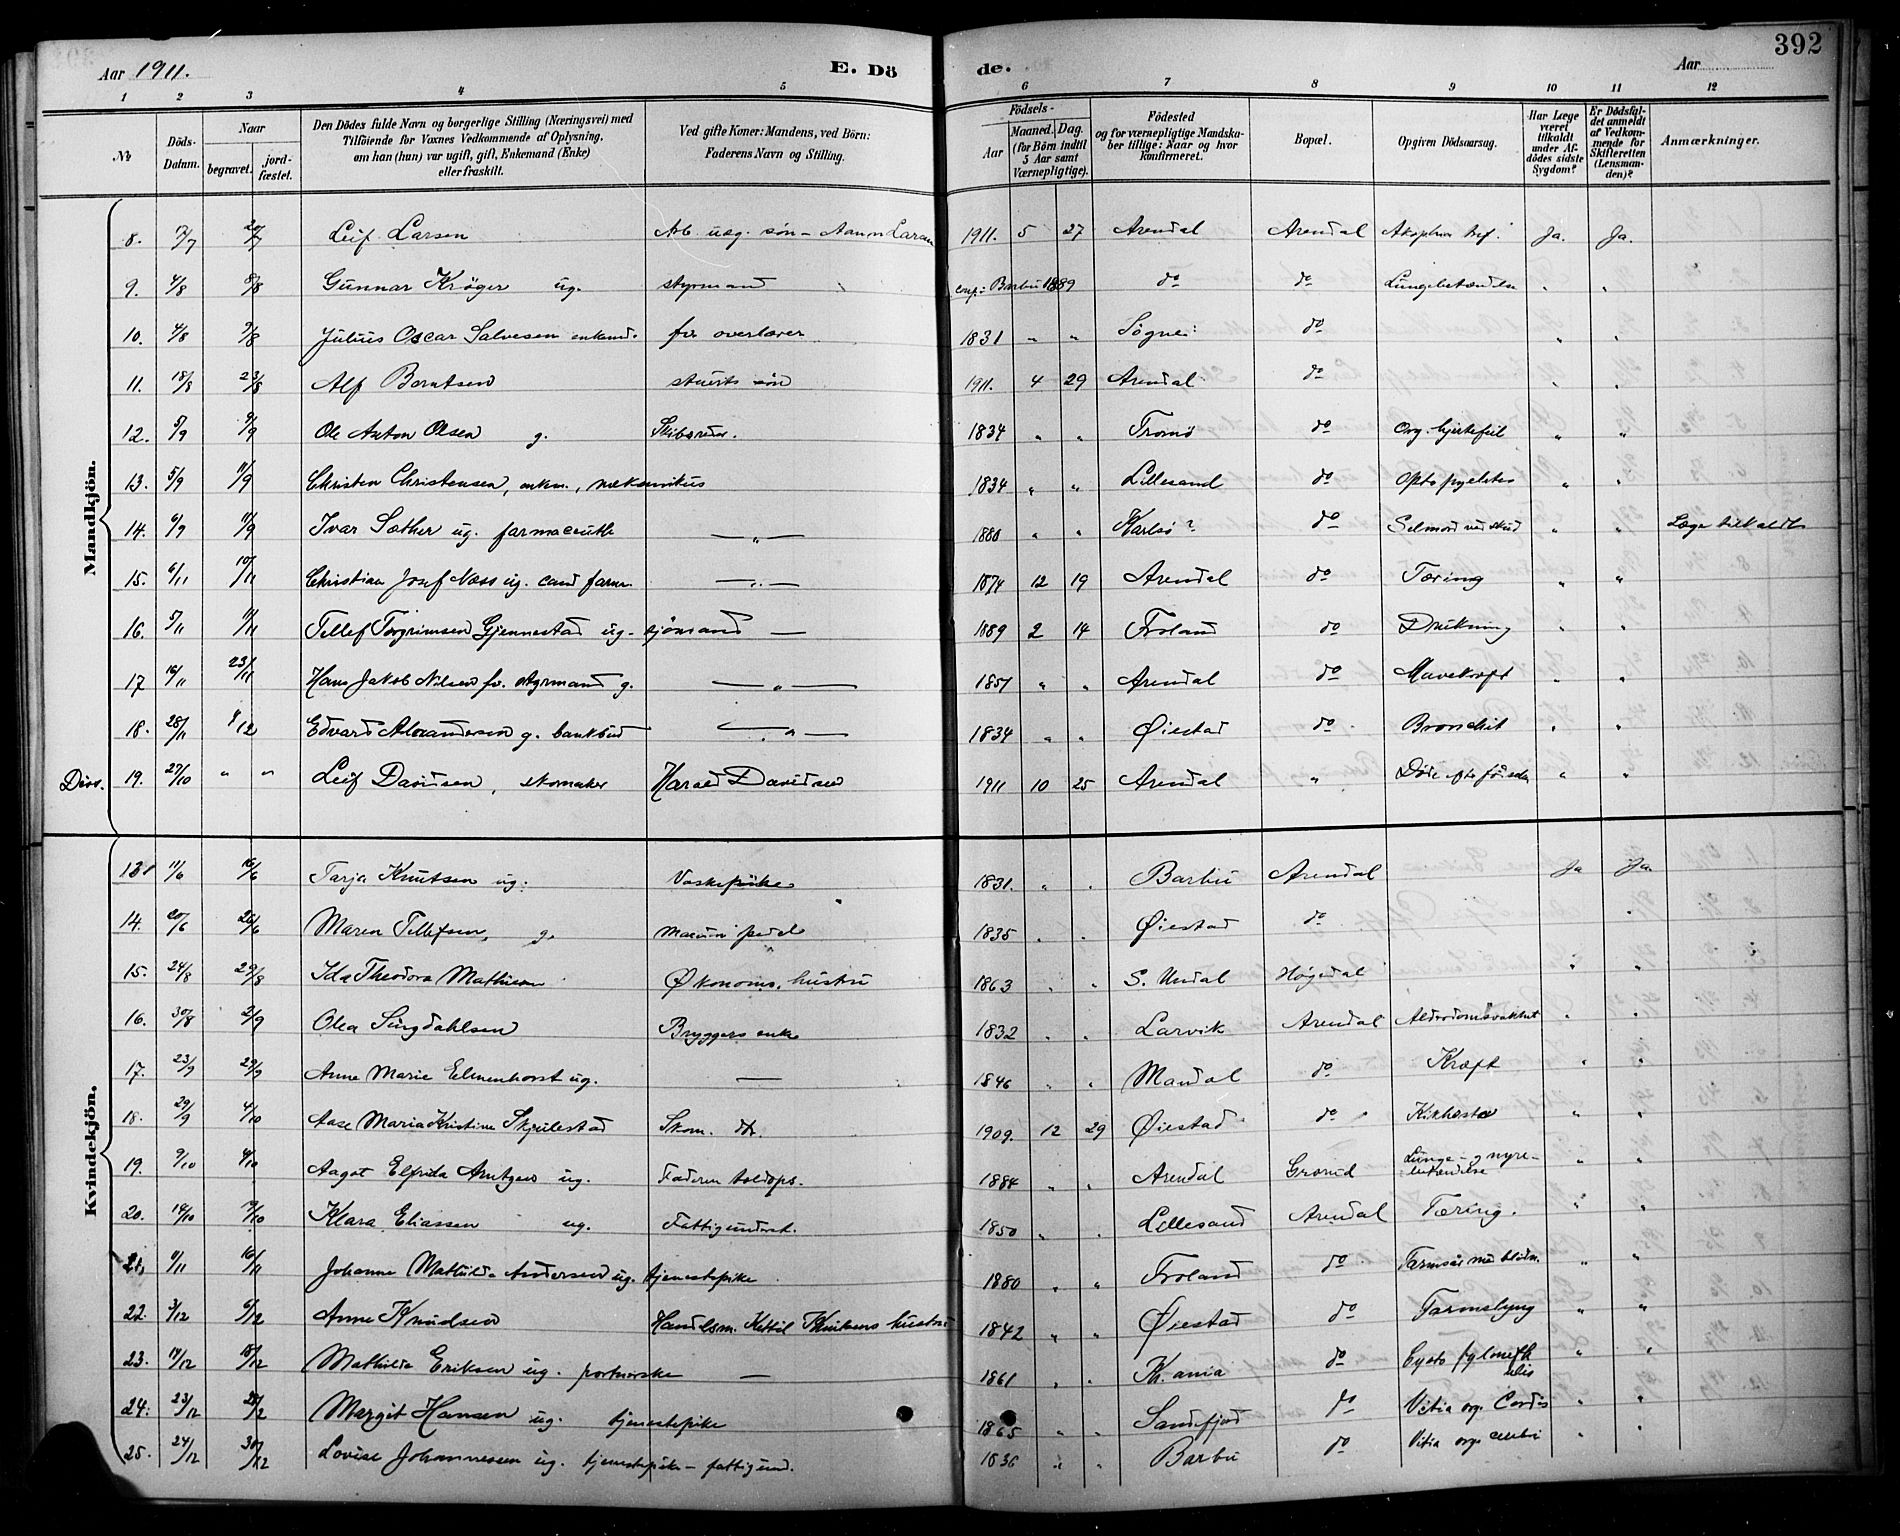 Aar 1911. E. Dö de. Aar 392
1 2 3 4 5 6 7 8 9 10 11 12
No
Döds-Datum.
Naar begravet. jord-fæstet.
Den Dödes fulde Navn og borgerlige Stilling (Næringsvei) med Tilföiende for Voxnes Vedkommende af Oplysning, om han (hun) var ugift, gift, Enkemand (Enke) eller fraskilt.
Ved gifte Koner: Mandens, ved Börn: Faderens Navn og Stilling.
Födsels- Aar Maaned. Dag. (for Börn indtil 5 Aar samt Værnepligtige).
Födested og for værnepligtige Mandskaber tillige: Naar og hvor konfirmeret.
Bopæl.
Opgiven Dödsaarsag.
Har Læge været tilkaldt under Afdödes sidste Sygdom?
Er Dödsfaldet anmeldt af Vedkommende for Skifteretten (Lensmanden)?
Anmærkninger.
Mandkjön.
8. 20/7 Leif Larsen Arb. søn 1911. 5 27 Arendal Arendal Ja. Ja.
9. 4/8 8/8 Gunnar Krøger ug. styrmand conf: Barbu 1889 do do " "
10. 4/8 9/8 Julius Oscar Salvesen enkemd. fv. overlærer 1831 " " Søgne: do " "
11. 18/8 23/8 Alf Berntsen stuerts søn 1911. 4 29 Arendal do " "
12. 5/9 9/9 Ole Anton Olsen g. 1834 " " Tromø do Org. hjertefeil " "
13. 5/9 11/9 Christen Christensen, enkm., mekanikus 1834 " " Lillesand do " "
14. 6/9 11/9 Ivar Sæther ug. farmaceut — " — 1880 " " Karlsø? do Selmord ved skud " " Læge tilkaldt
15. 6/11 10/11 Christian Josef Næss ug. cand farm. — " — 1874 12 19 Arendal do Tæring " "
16. 5/11 11/11 Tellef Torgrimsen Gjennestad ug. sjømand — 1889 2 14 Froland do Drukning " "
17 16/11 23/11 Hans Jakob Nilsen fv. styrmand g. — " — 1851 " " Arendal do Mavekræft " "
18. 28/11 4/12 Edvard Alexandersen g. bankbud — " — 1834 " " Øiestad do Bronchit " "
Diss. 19. 27/10 " " Leif Davidsen, skomaker Harald Davidsen 1911 10 25 Arendal " Døde efter fødselen " "
Kvindekjön.
13. 11/6 16/6 Tarja Knutsen ug. Vaskepike 1831. " " Barbu Arendal Ja Ja.
14. 20/6 26/6 Maren Tellefsen, g. 1835 " " Øiestad do "
15. 24/8 29/8 Ida Theodora Mathisen Økonoms. hustru 1863 " " S. Undal Høgedal " "
16. 30/8 2/9 Olea Syvgdahlsen Bryggers enke 1832 " " Larvik Arendal Alderdomssvakhet " "
17. 23/9 29/9 Anne Marie Elmenhorst ug. — 1846 " " Mandal do Kræft " "
18. 29/9 4/10 Aase Maria Kristine Skjulestad Skom. dtr. 1909. 12 29 Øiestad do Kikhoste " "
19. 9/10 Aagot Elfrida Arntzen ug. Faderen toldops. 1884 " " Arendal Lunge- og nyre-betændelse " "
20. 14/10 Klara Eliassen ug. Fattigunderst. 1850 " " Lillesand Arendal Tæring. " "
21. 16/11 Johanne Mathilde Andersen ug. tjenestepike 1880 " " Froland do Tarmsår med blødn. " "
22. 3/12 Anne Knudsen Handelsm. Kittil Knudsens hustru 1842 " " Øiestad do Tarmslyng " "
23. 14/12 18/12 Mathilde Eriksen ug. portnerske — 1861 " " Kr.ania do " "
24. 23/12 Margit Hansen ug. tjenestepike 1865 " " Sandefjord do Vitia org. Cordis " "
25. 24/12 30/12 Lovise Johannessen ug. tjenestepike – fattigund. 1836 " " Barbu do Vitia org. " "